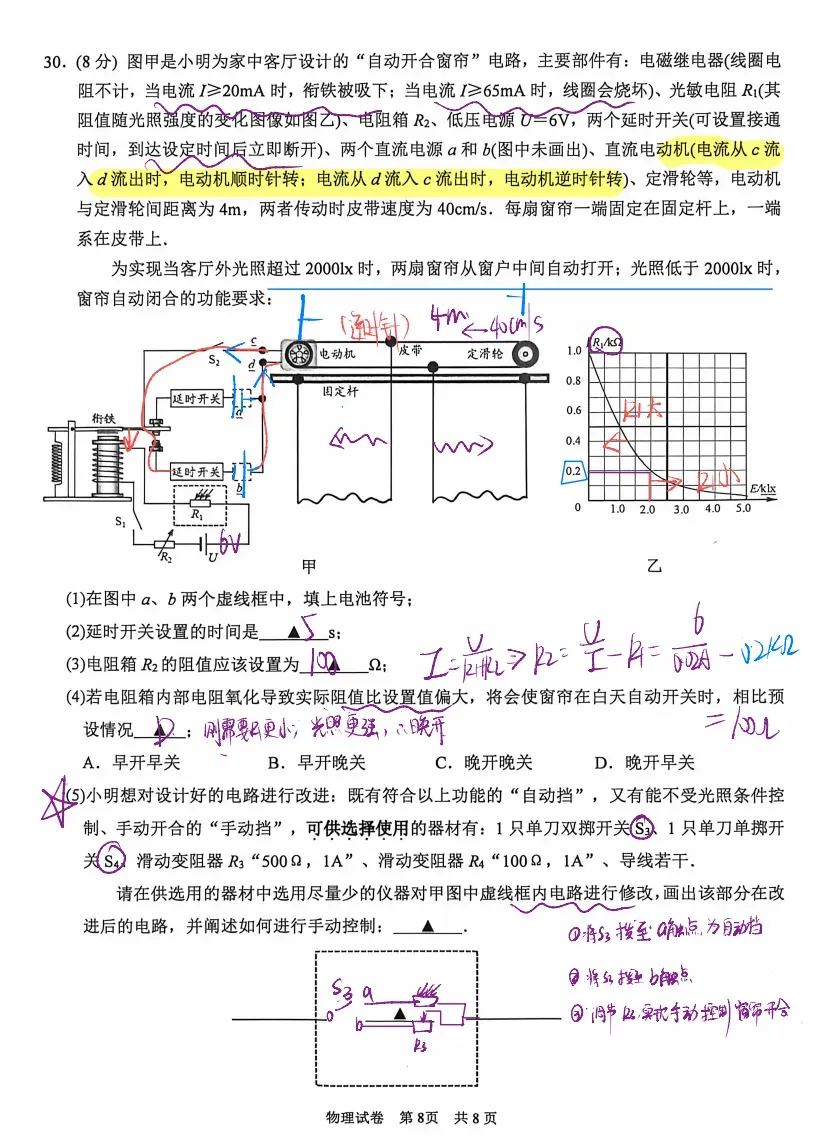 30. (8 分) 图甲是小明为家中客厅设计的“自动开合窗帘”电路，主要部件有：电磁继电器(线圈电
阻不计，当电流 I≥20mA 时，衔铁被吸下；当电流 I≥65mA 时，线圈会烧坏)、光敏电阻 R₁(其
阻值随光照强度的变化图像如图乙)、电阻箱 R₂、低压电源 U=6V，两个延时开关(可设置接通
时间，到达设定时间后立即断开)、两个直流电源 a 和 b(图中未画出)、直流电动机(电流从 c 流
入 d 流出时，电动机顺时针转；电流从 d 流入 c 流出时，电动机逆时针转)、定滑轮等，电动机
与定滑轮间距离为 4m，两者传动时皮带速度为 40cm/s．每扇窗帘一端固定在固定杆上，一端
系在皮带上．
为实现当客厅外光照超过 2000lx 时，两扇窗帘从窗户中间自动打开；光照低于 2000lx 时，
窗帘自动闭合的功能要求：
(逆时针) 4m ←40cm/s
S₂ c d 电动机 皮带 定滑轮
延时开关 a
固定杆
衔铁
延时开关 b
R₁
S₁
R₂ U 6V
甲
R₁/kΩ
1.0
0.8
0.6
0.4
0.2
0 1.0 2.0 3.0 4.0 5.0
E/klx
R1大
R1小
乙
(1)在图中 a、b 两个虚线框中，填上电池符号；
(2)延时开关设置的时间是 ▲ 5 s；
(3)电阻箱 R₂ 的阻值应该设置为 100 ▲ Ω；
I=U/R1+R2⇒R2=U/I-R1=6/0.02A-0.2kΩ
=100Ω
(4)若电阻箱内部电阻氧化导致实际阻值比设置值偏大，将会使窗帘在白天自动开关时，相比预
设情况 ▲ D ；
则需要R1更小，光照更强，∴晚开
A．早开早关 B．早开晚关 C．晚开晚关 D．晚开早关
(5)小明想对设计好的电路进行改进：既有符合以上功能的“自动挡”，又有能不受光照条件控
制、手动开合的“手动挡”，可供选择使用的器材有：1 只单刀双掷开关 S₃、1 只单刀单掷开
关 S₄、滑动变阻器 R₃“500Ω，1A”、滑动变阻器 R₄“100Ω，1A”、导线若干．
请在供选用的器材中选用尽量少的仪器对甲图中虚线框内电路进行修改，画出该部分在改
进后的电路，并阐述如何进行手动控制： ▲ ．
①将S3拨至a触点为自动挡
②将S3拨至b触点
③调节R3实现手动控制窗帘开合
S3 a
b ▲
R3
物理试卷 第8页 共8页